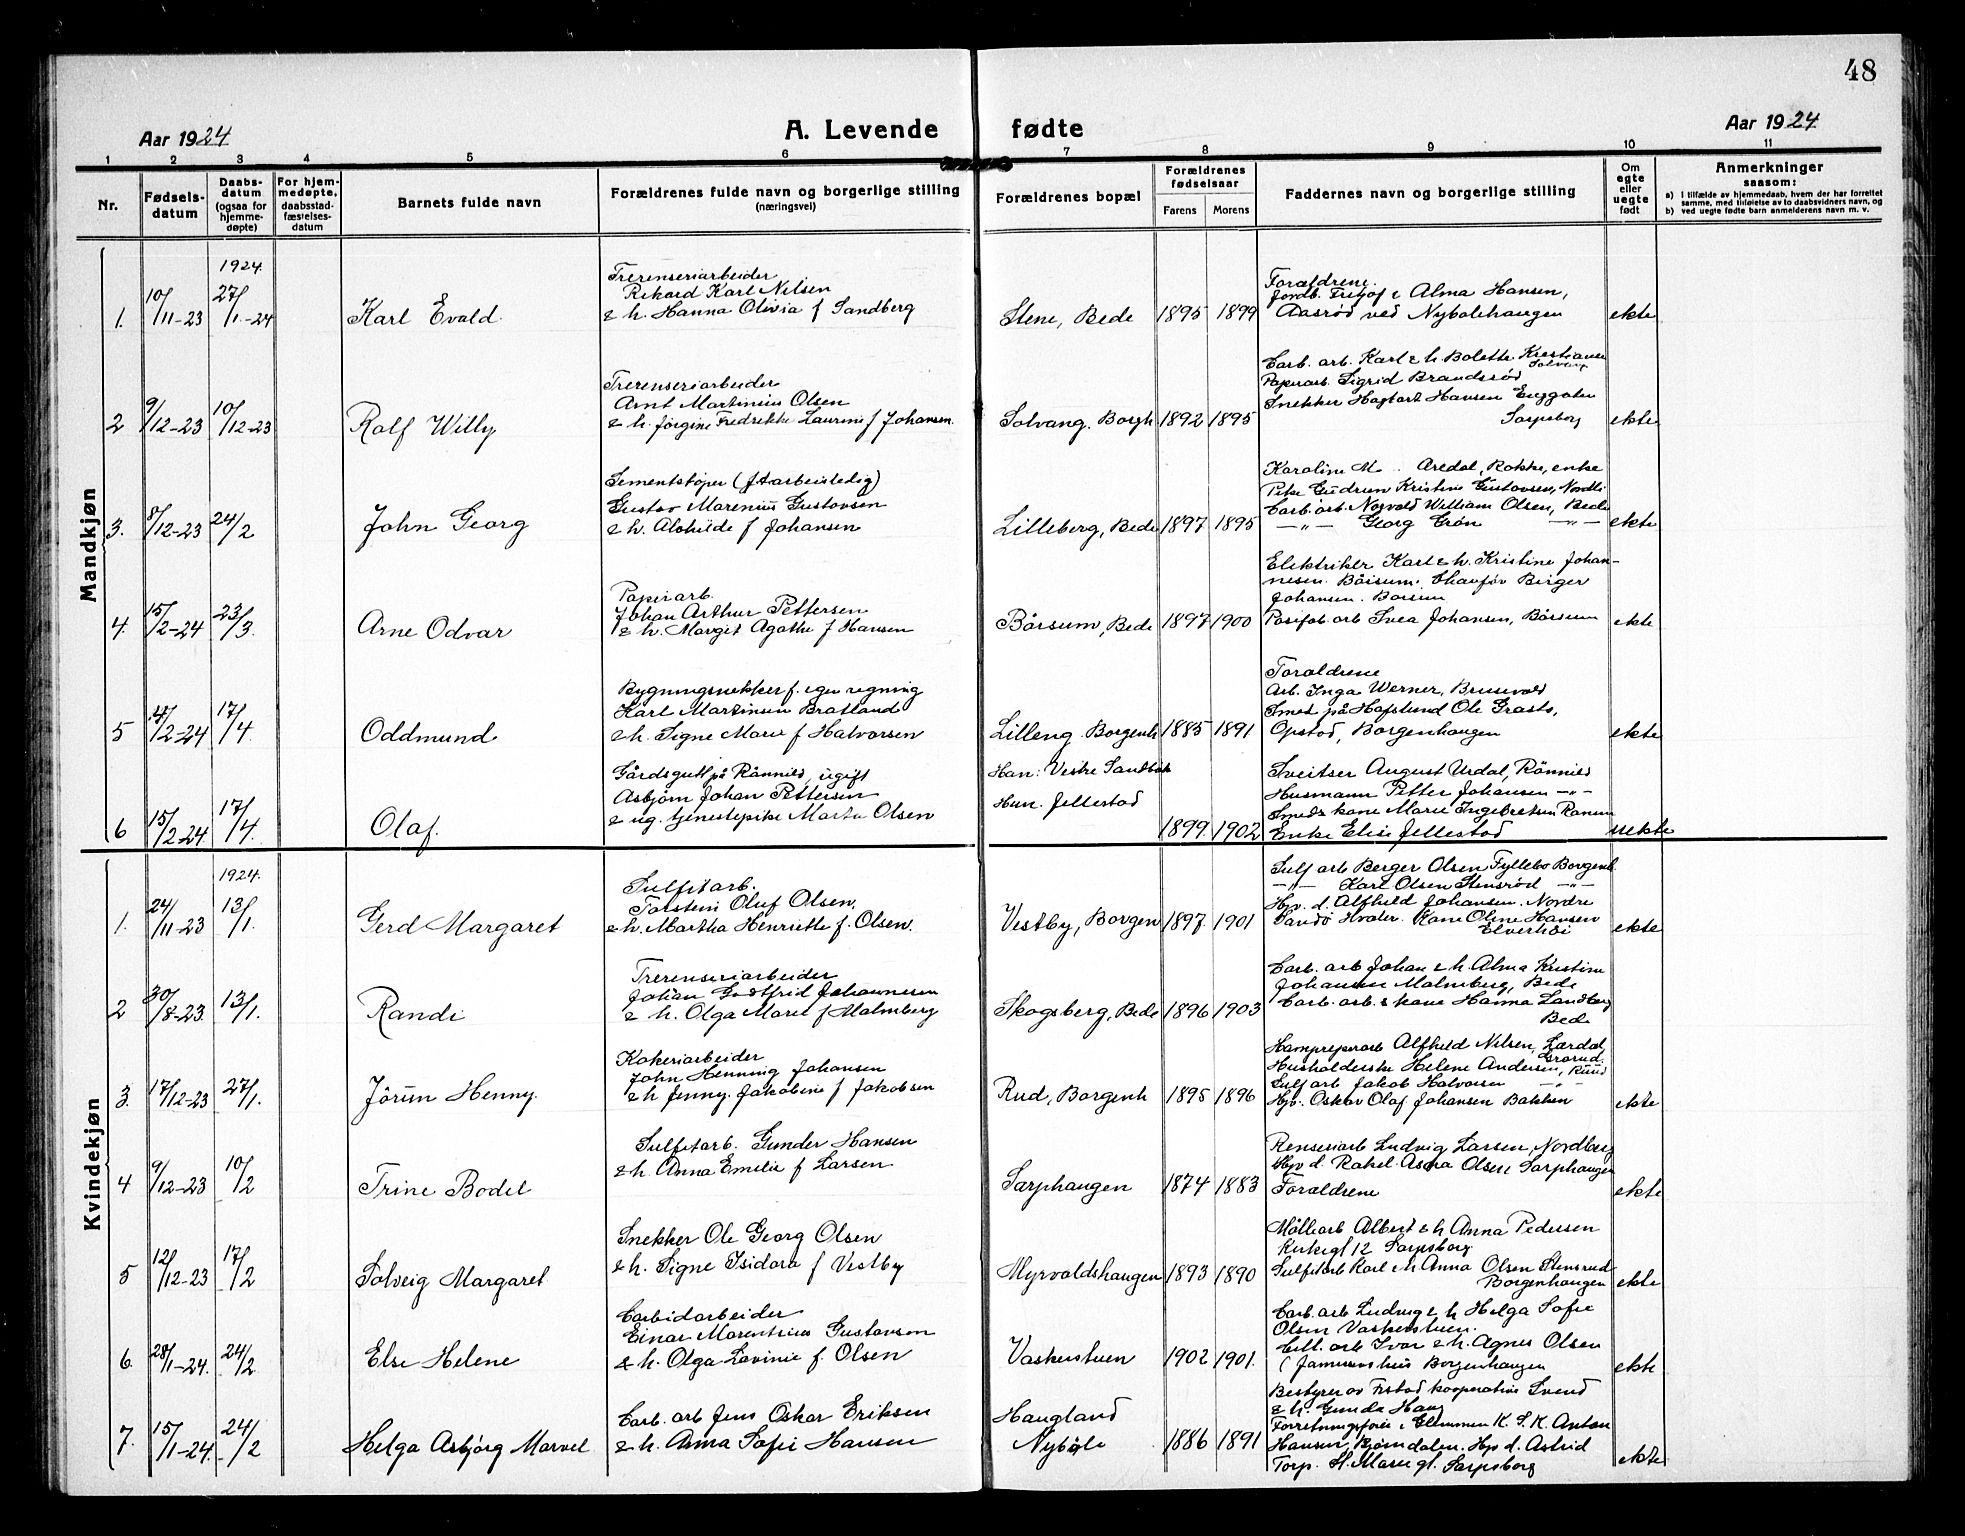 48
Aar 1924
A. Levende fødte
Aar 1924
1 2 3 4 5 6 7 8 9 10 11
Nr.
Fødsels-
datum
Daabs-
datum
(ogsaa for
hjemme-
døpte)
For hjem-
medøpte,
daabsstad-
fæstelses-
datum
Barnets fulde navn
Forældrenes fulde navn og borgerlige stilling
(næringsvei)
Forældrenes bopæl
Forældrenes
fødselsaar
Farens Morens
Faddernes navn og borgerlige stilling
Om
egte
eller
uegte
født
Anmerkninger
saasom:
a) i tilfælde av hjemmedaab, hvem der har forrettet
samme, med tilføielse av to daabsvidners navn, og
b) ved uegte fødte barn anmelderens navn m. v.
Mandkjøn
1. 10/11-23 1924. 27/1-24 Karl Evald
Trerenseriarbeider
Rikard Karl Nilsen
& h. Hanna Olivia f Sandberg
Stene, Bede 1895 1899
Forældrene.
Jordb. Fritjof & Alma Hansen,
Aasrød ved Nybølehaugen
ekte
2 9/12-23 10/12-23 Rolf Willy
Trerenseriarbeider
Arnt Martinius Olsen
& h. Jørgine Fredrikke Laurine f Johansen.
Solvang, Borgh 1892 1895
Carb. arb. Karl & h. Bolette Kristiansen
Solvang
Papirarb. Sigrid Brandsrød
Snekker Hagbart Hansen Enggaten
Sarpsborg
ekte
3. 8/12-23 24/2 John Georg
Sementstøper (f t arbeisledig)
Gustav Marenius Gustavsen
& h. Alvhilde f Johansen
Lilleberg, Bede 1897 1895
Karoline M. Aredal, Rokke, enke
Pike Gudrun Kristine Gustavsen, Nordli
Carb. arb. Norvald William Olsen, Bede
—"— Georg Grøn —"—
ekte
4. 15/2-24 23/3. Arne Odvar
Papirarb.
Johan Arthur Pettersen
& h. Margit Agathe f Hansen
Børsum, Bede 1897 1900
Elektriker Karl & h. Kristine Johan-
nesen. Børsum. Chauffør Birger
Johansen. Børsum
Papirfab. arb Svea Johansen, Børsum
ekte
5 14/2-24 17/4. Oddmund
Bygningsnekker f. egen regning
Karl Martinsen Bratland
& h. Signe Marie f Halvorsen
Lilleng Borgenh 1885 1891
Forældrene
Arb. Inga Werner, Brusevold
Smed på Hafslund Ole Grasto,
Opstad, Borgenhaugen
ekte
6 15/2-24. 17/4. Olaf.
Gårdsgutt på Rånnils, ugift
Asbjørn Johan Pettersen
& ug. tjenestepike Marta Olsen
Han: Vestre Sandbæk
Hun: Jellestad
1899. 1902
Sveitser August Urdal, Rånnils
Husmann Petter Johansen —"—
Smeds kone Marie Ingebretsen
Enke Elise Jellestad
uekte
Kvindekjøn
1. 24/11-23 1924. 13/1. Gerd Margaret
Sulfitarb.
Torstein Oluf Olsen.
& h. Martha Henriette f. Olsen.
Vestby, Borgen 1897. 1901
Sulf arb Berger Olsen Fyllebo Borgenh.
—"— Karl Olsen Stensrød —"—
Hpv. d. Alfhild Johansen. Nordre
Sandø Hvaler. Kone Oline Hansen
Elverhøi
ekte
2 30/8-23. 13/1. Randi
Trerenseriarbeider
Johan Godtfrid Johannesen
& h. Olga Marie f Malmberg
Skogsberg, Bede 1896 1903
Carb. arb Johan & h. Alma Kristine
Johansen Malmberg, Bede
Carb. arb. & kone Hanna Sandberg
Bede
3. 17/12-23 27/1. Jørun Henny.
Kokeriarbeider
John Henning Johansen
& h Jenny Jakobine f Jakobsen
Rud, Borgenh 1895 1896
Husholderske Helene Andersen, Ruud
Sulf arb Jakob Halvorsen —"—
Hpv. Oskar Olaf Johansen Bakken
ekte
4 9/12-23 10/2 Trine Bodil
Sulfitarb. Gunder Hansen
& h. Anna Emelie f Larsen
Sarphaugen 1874 1883
Renseriarb Ludvig Larsen, Nordberg
Hpv d. Rakel Asora Olsen Sarphaugen
Forældrene
ekte
5 12/12-23 17/2 Solveig Margaret
Snekker Ole Georg Olsen
& h. Signe Isidora f Vestby
Myrvoldshaugen 1893 1890
Møllearb Albert & h Anna Pedersen
Kirkegt 12 Sarpsborg
Sulfitarb Karl & h Anna Olsen Stensrud
Borgenhaugen
ekte
6. 28/1-24. 24/2. Else Helene
Carbidarbeider
Einar Marentius Gustavsen
& h. Olga Lavinie f. Olsen
Vaskerstuen 1902 1901.
Carb. arb Ludvig & h Helga Sofie
Olsen Vaskerstuen.
Cell. arb Ivar & h. Agnes Olsen
Borgenhaugen
ekte
7. 15/1-24. 24/2 Helga Asbjørg Marvel
Carb. arb Jens Oskar Eriksen
& h. Anna Sofie Hansen
Haugland
Nybøle 1886 1891
Bestyrer av Fr.stad kooperative Svend
& h. Gunda Haug
Forretningsfører i Glemmen K. S. K. Anton
Hansen, Bjørndalen. Hpv d. Astrid
Torp. St. Marie gt. Sarpsborg
ekte